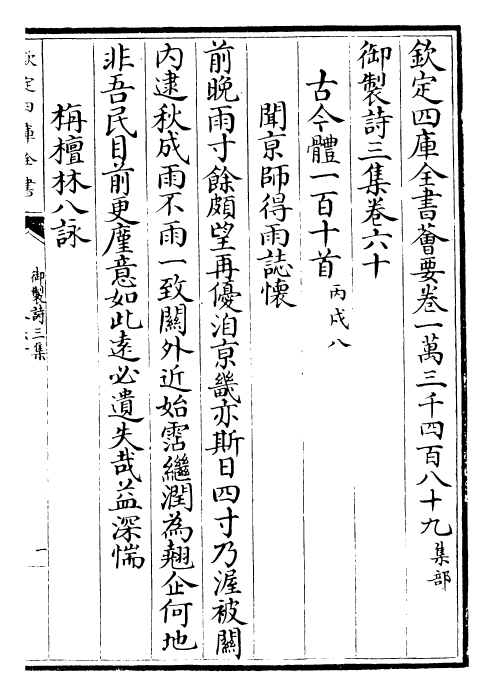 欽定四庫全書薈要卷一萬三千四百八十九集部
御製詩三集卷六十
古今體一百十首丙戌八
聞京師得雨誌懷
前晚雨寸餘頗望再優洎京畿亦斯日四寸乃渥被關
内逮秋成雨不雨一致關外近始霑繼潤為翹企何地
非吾民目前更廑意如此遠必遺失哉益深惴
栴檀林八詠
欽定四庫全書
御製詩三集
一